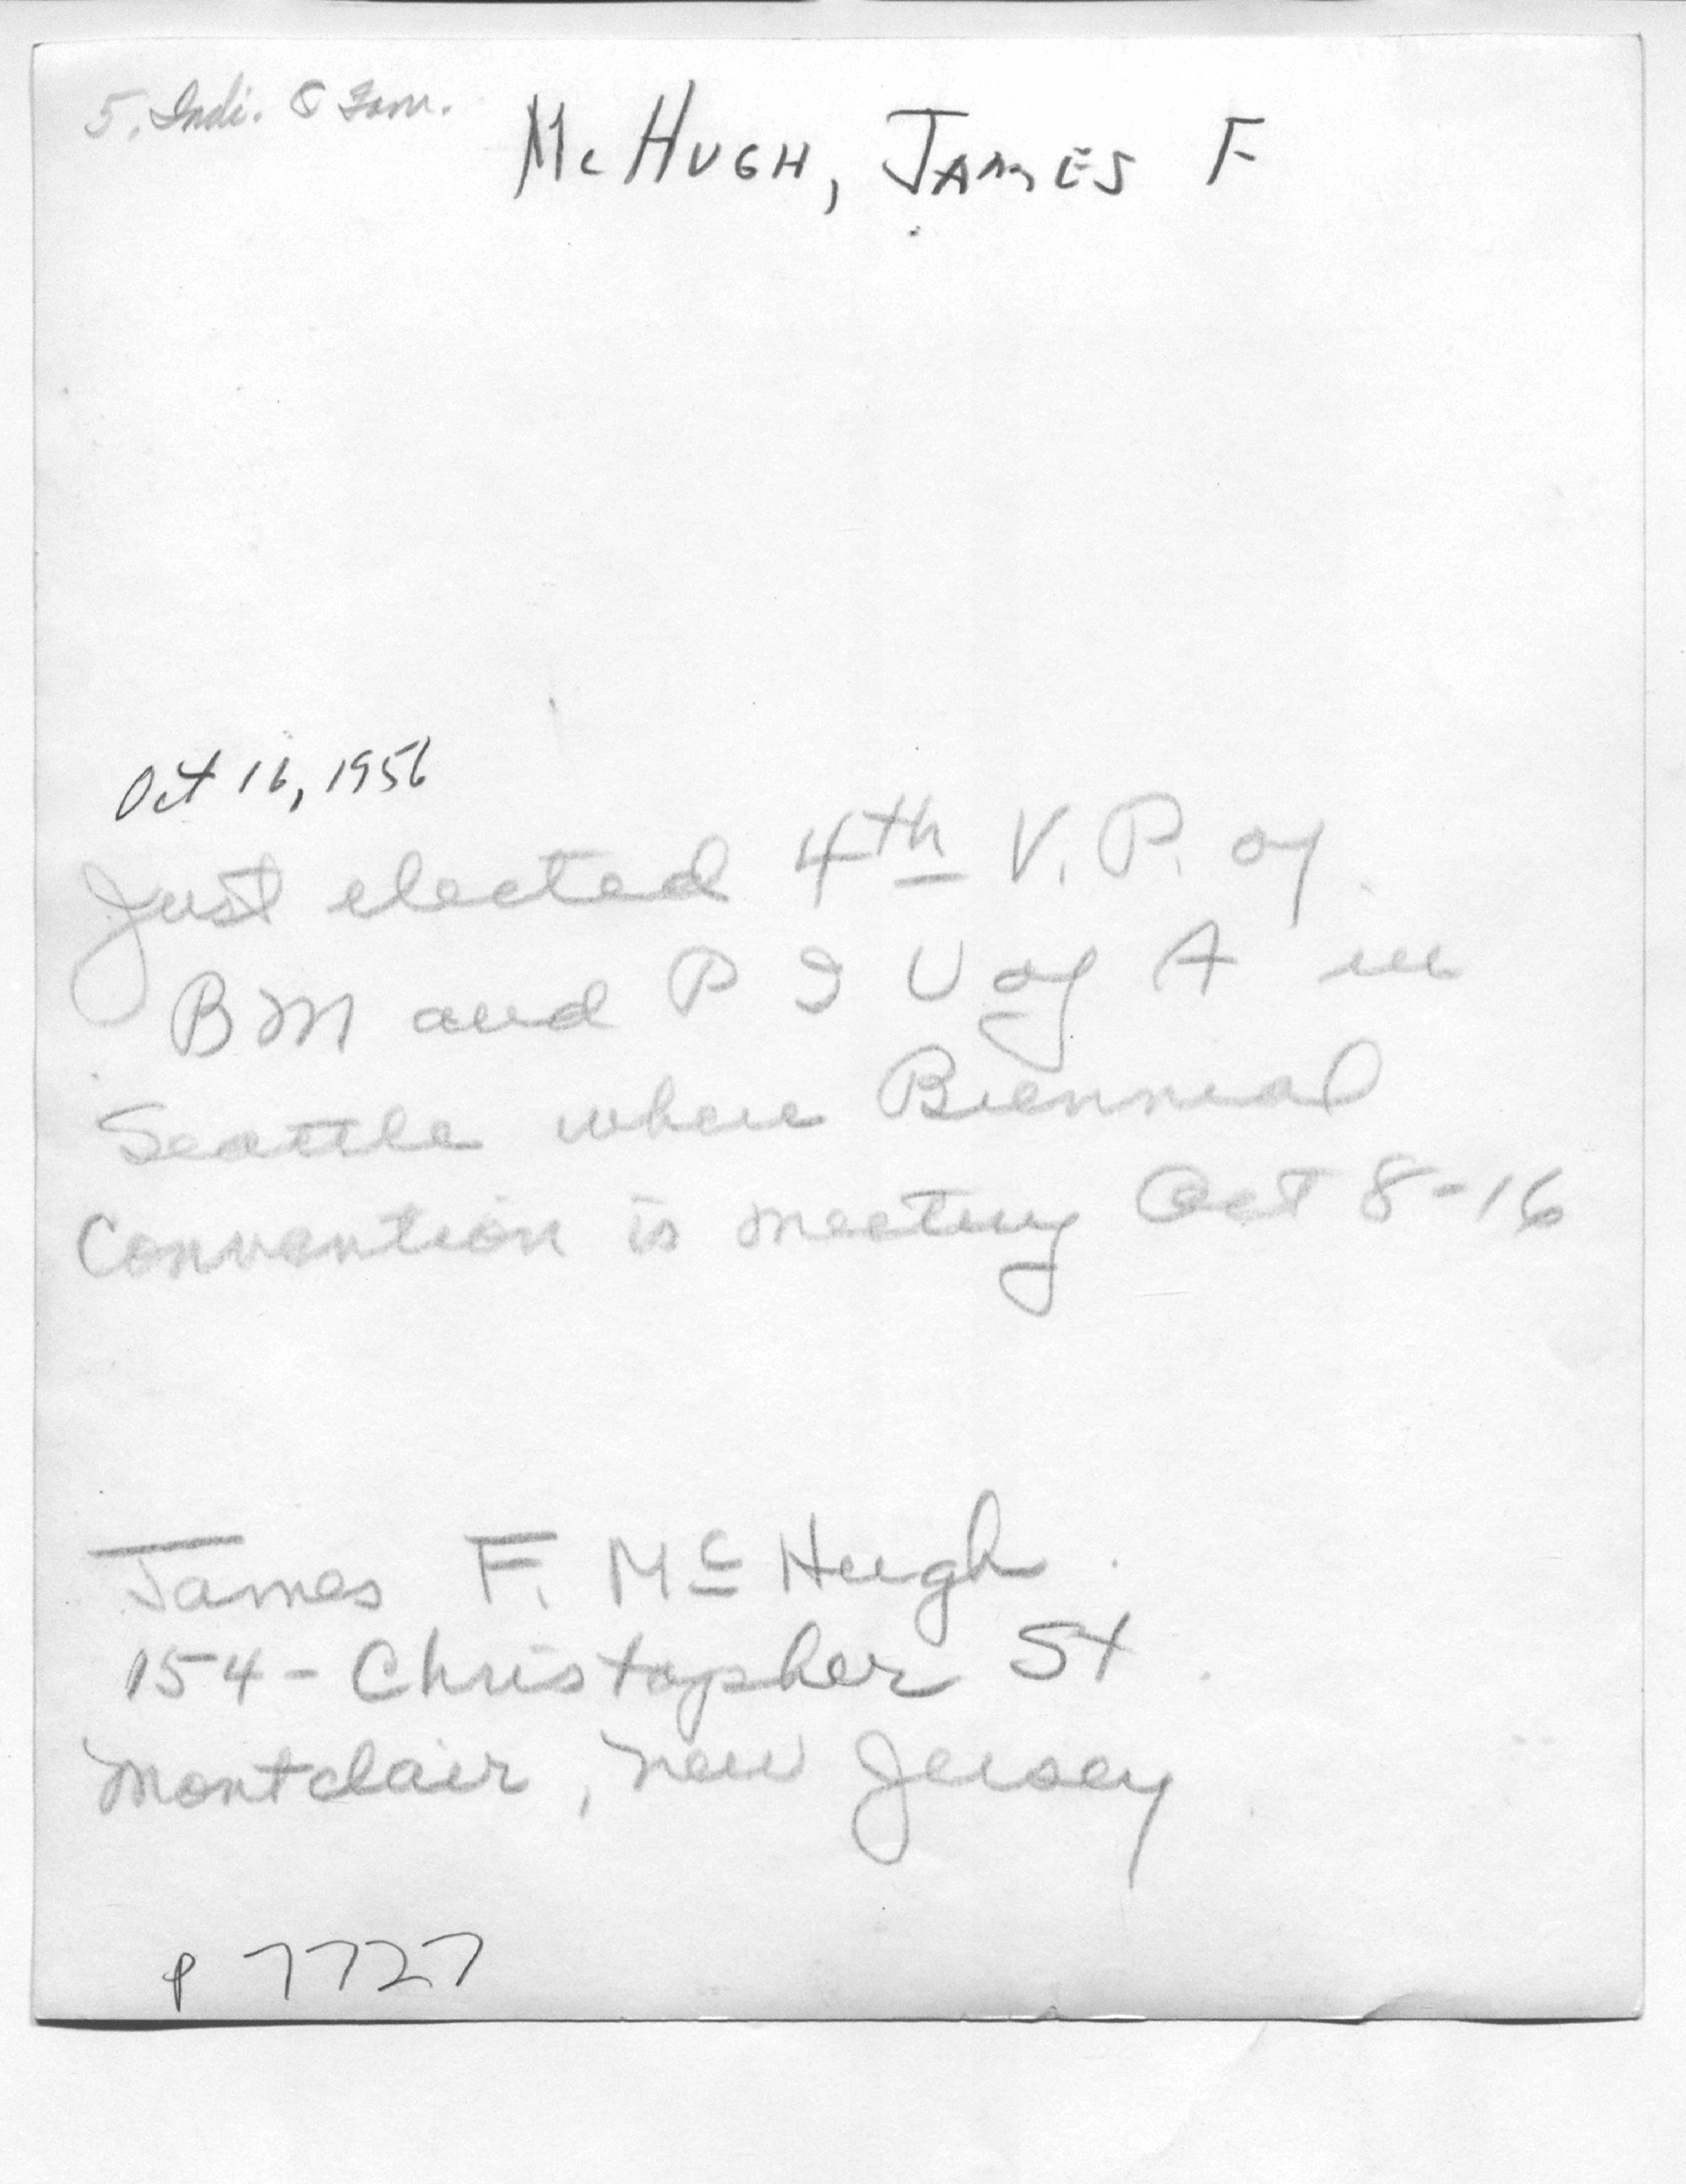 5. Indi. & Fam.
McHUGH, JAMES F
Oct 16, 1956
Just elected 4th V. P. of
BM and P I U of A in
Seattle where Biennial
Convention is meeting Oct 8-16
James F. Mc Hugh
154 - Christopher St
Montclair, New Jersey
P 7727